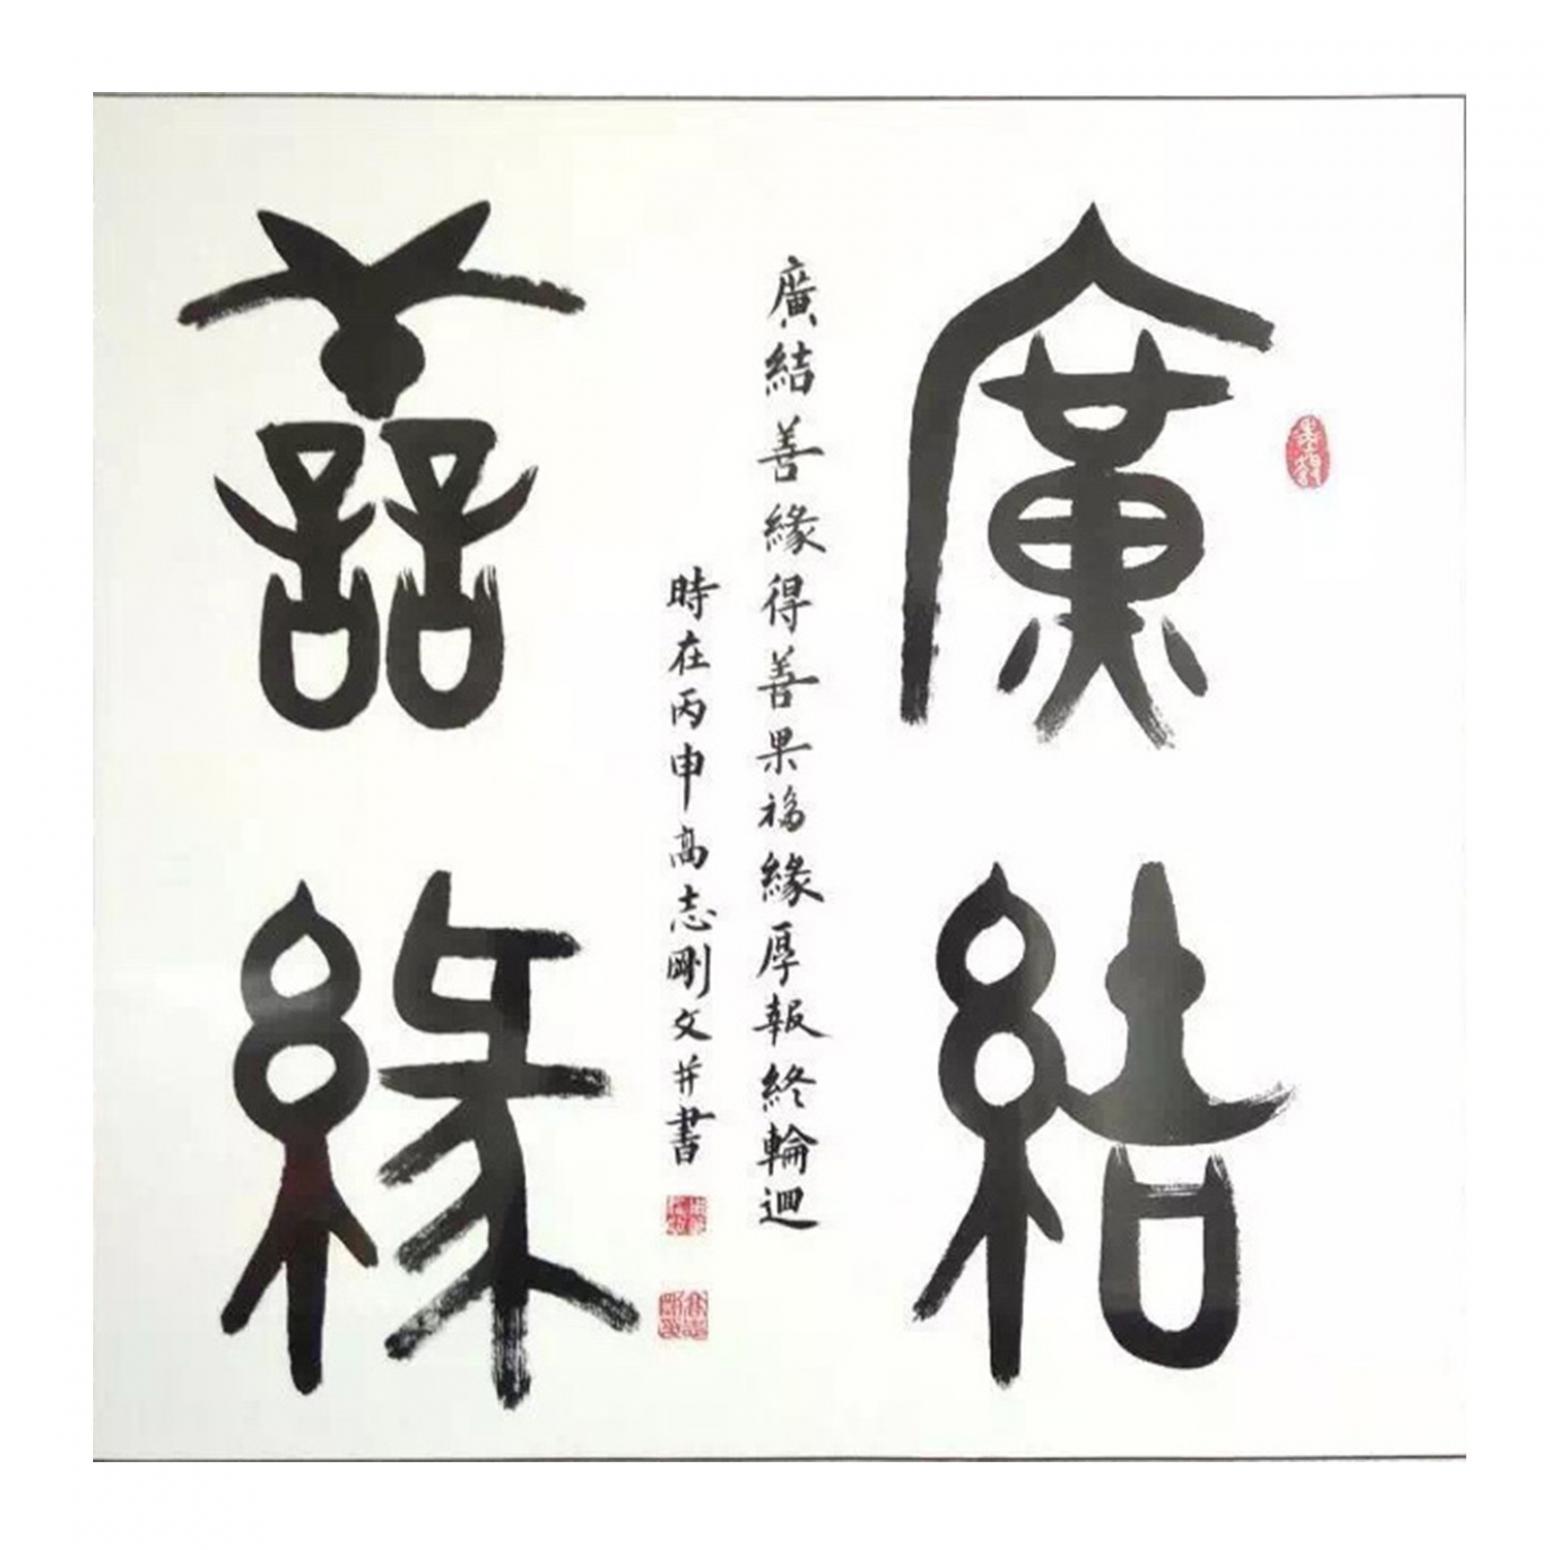 廣結
廣結善緣得善果福緣厚報終輪迴
時在丙申高志剛文并書
善緣